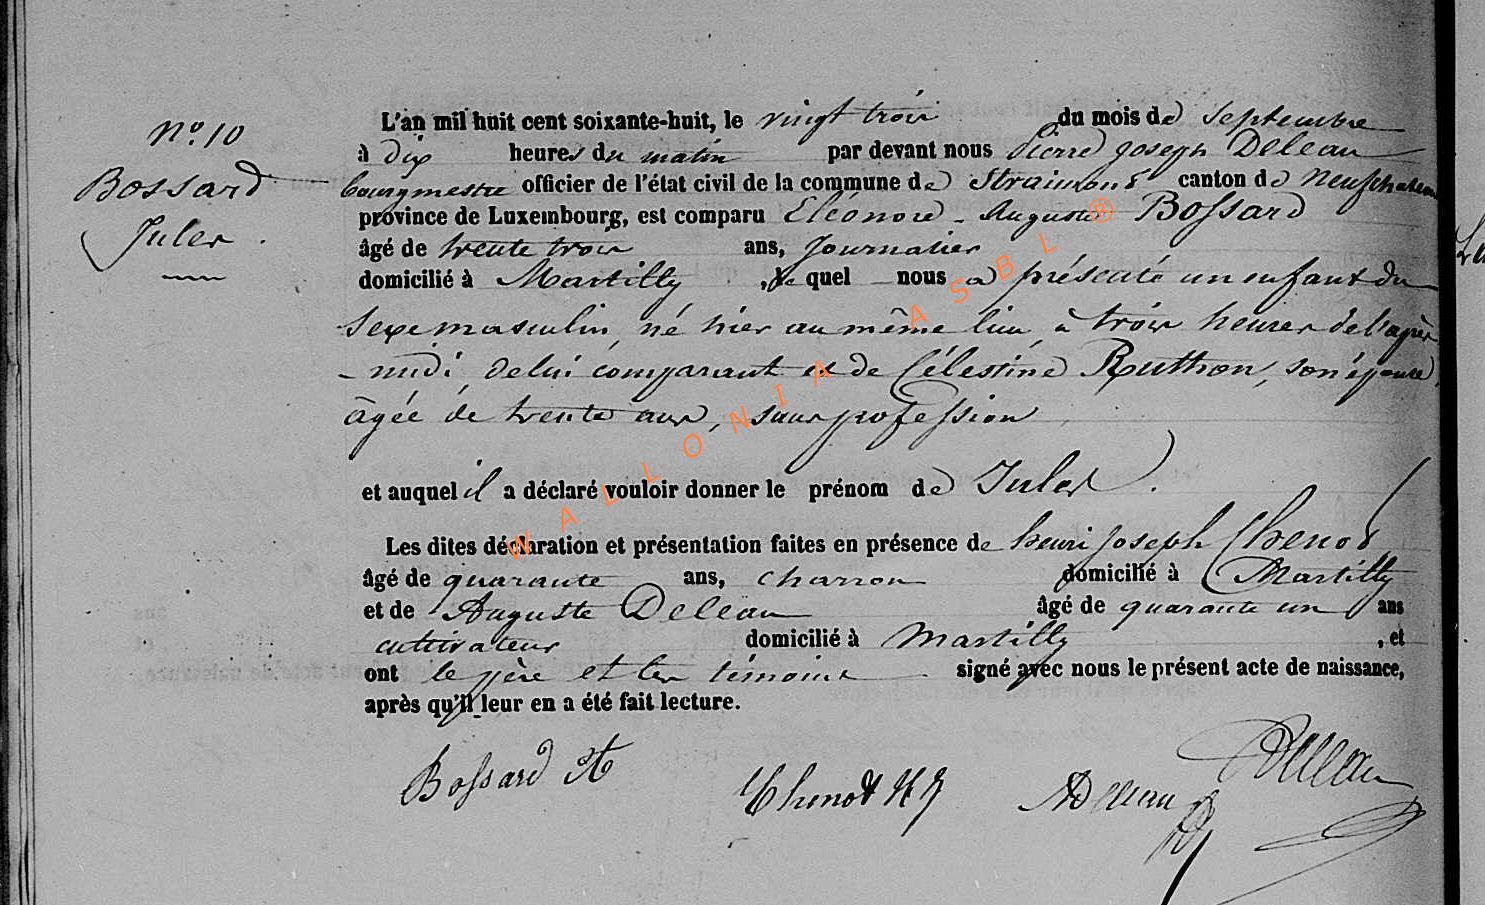 N° 10
Bossard
Jules.
L'an mil huit cent soixante-huit, le vingt trois du mois de septembre
à dix heures du matin par devant nous Pierre Joseph Deleau
bourgmestre officier de l'état civil de la commune de Straimont canton de Neufchateau
province de Luxembourg, est comparu Eléonore-Auguste Bossard
âgé de trente trois ans, Journalier
domicilié à Martilly, le quel nous a présenté un enfant du
sexe masculin, né hier au même lieu, à trois heures de l'après
-midi, de lui comparant et de Célestine Ruthon, son épouse,
âgée de trente ans, sans profession
et auquel il a déclaré vouloir donner le prénom de Jules.
Les dites déclaration et présentation faites en présence de henri Joseph Chenot
âgé de quarante ans, charron domicilié à Martilly
et de Auguste Deleau âgé de quarante un ans
cultivateur domicilié à Martilly, et
ont le père et les témoins signé avec nous le présent acte de naissance,
après qu'il leur en a été fait lecture.
Bossard Chenot HJ ADeleau Deleau
WALLONIA ASBL ®